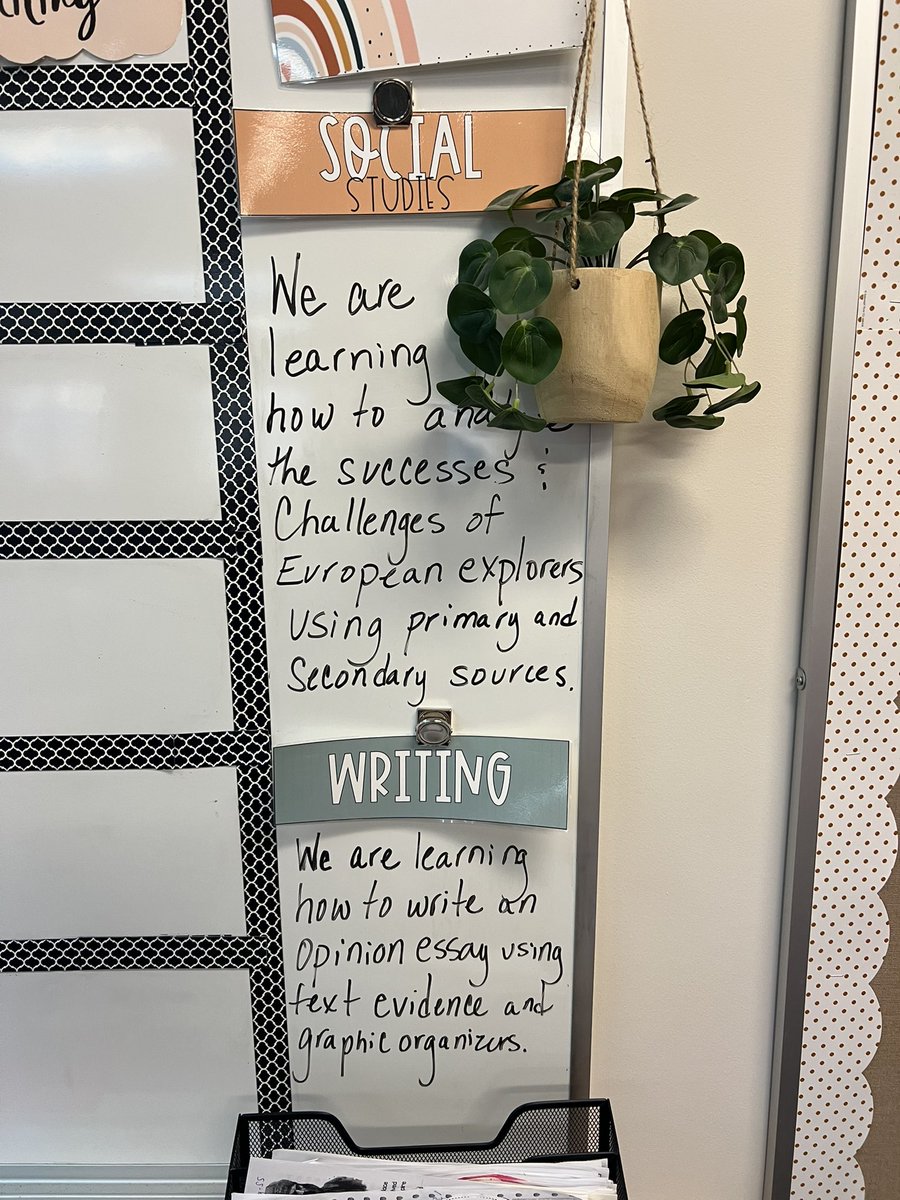 SOCIAL
STUDIES
We are
learning
how to
the successes &
Challenges of
European explorers
using primary and
Secondary sources.
WRITING
We are learning
how to write an
Opinion essay using
text evidence and
graphic organizers.